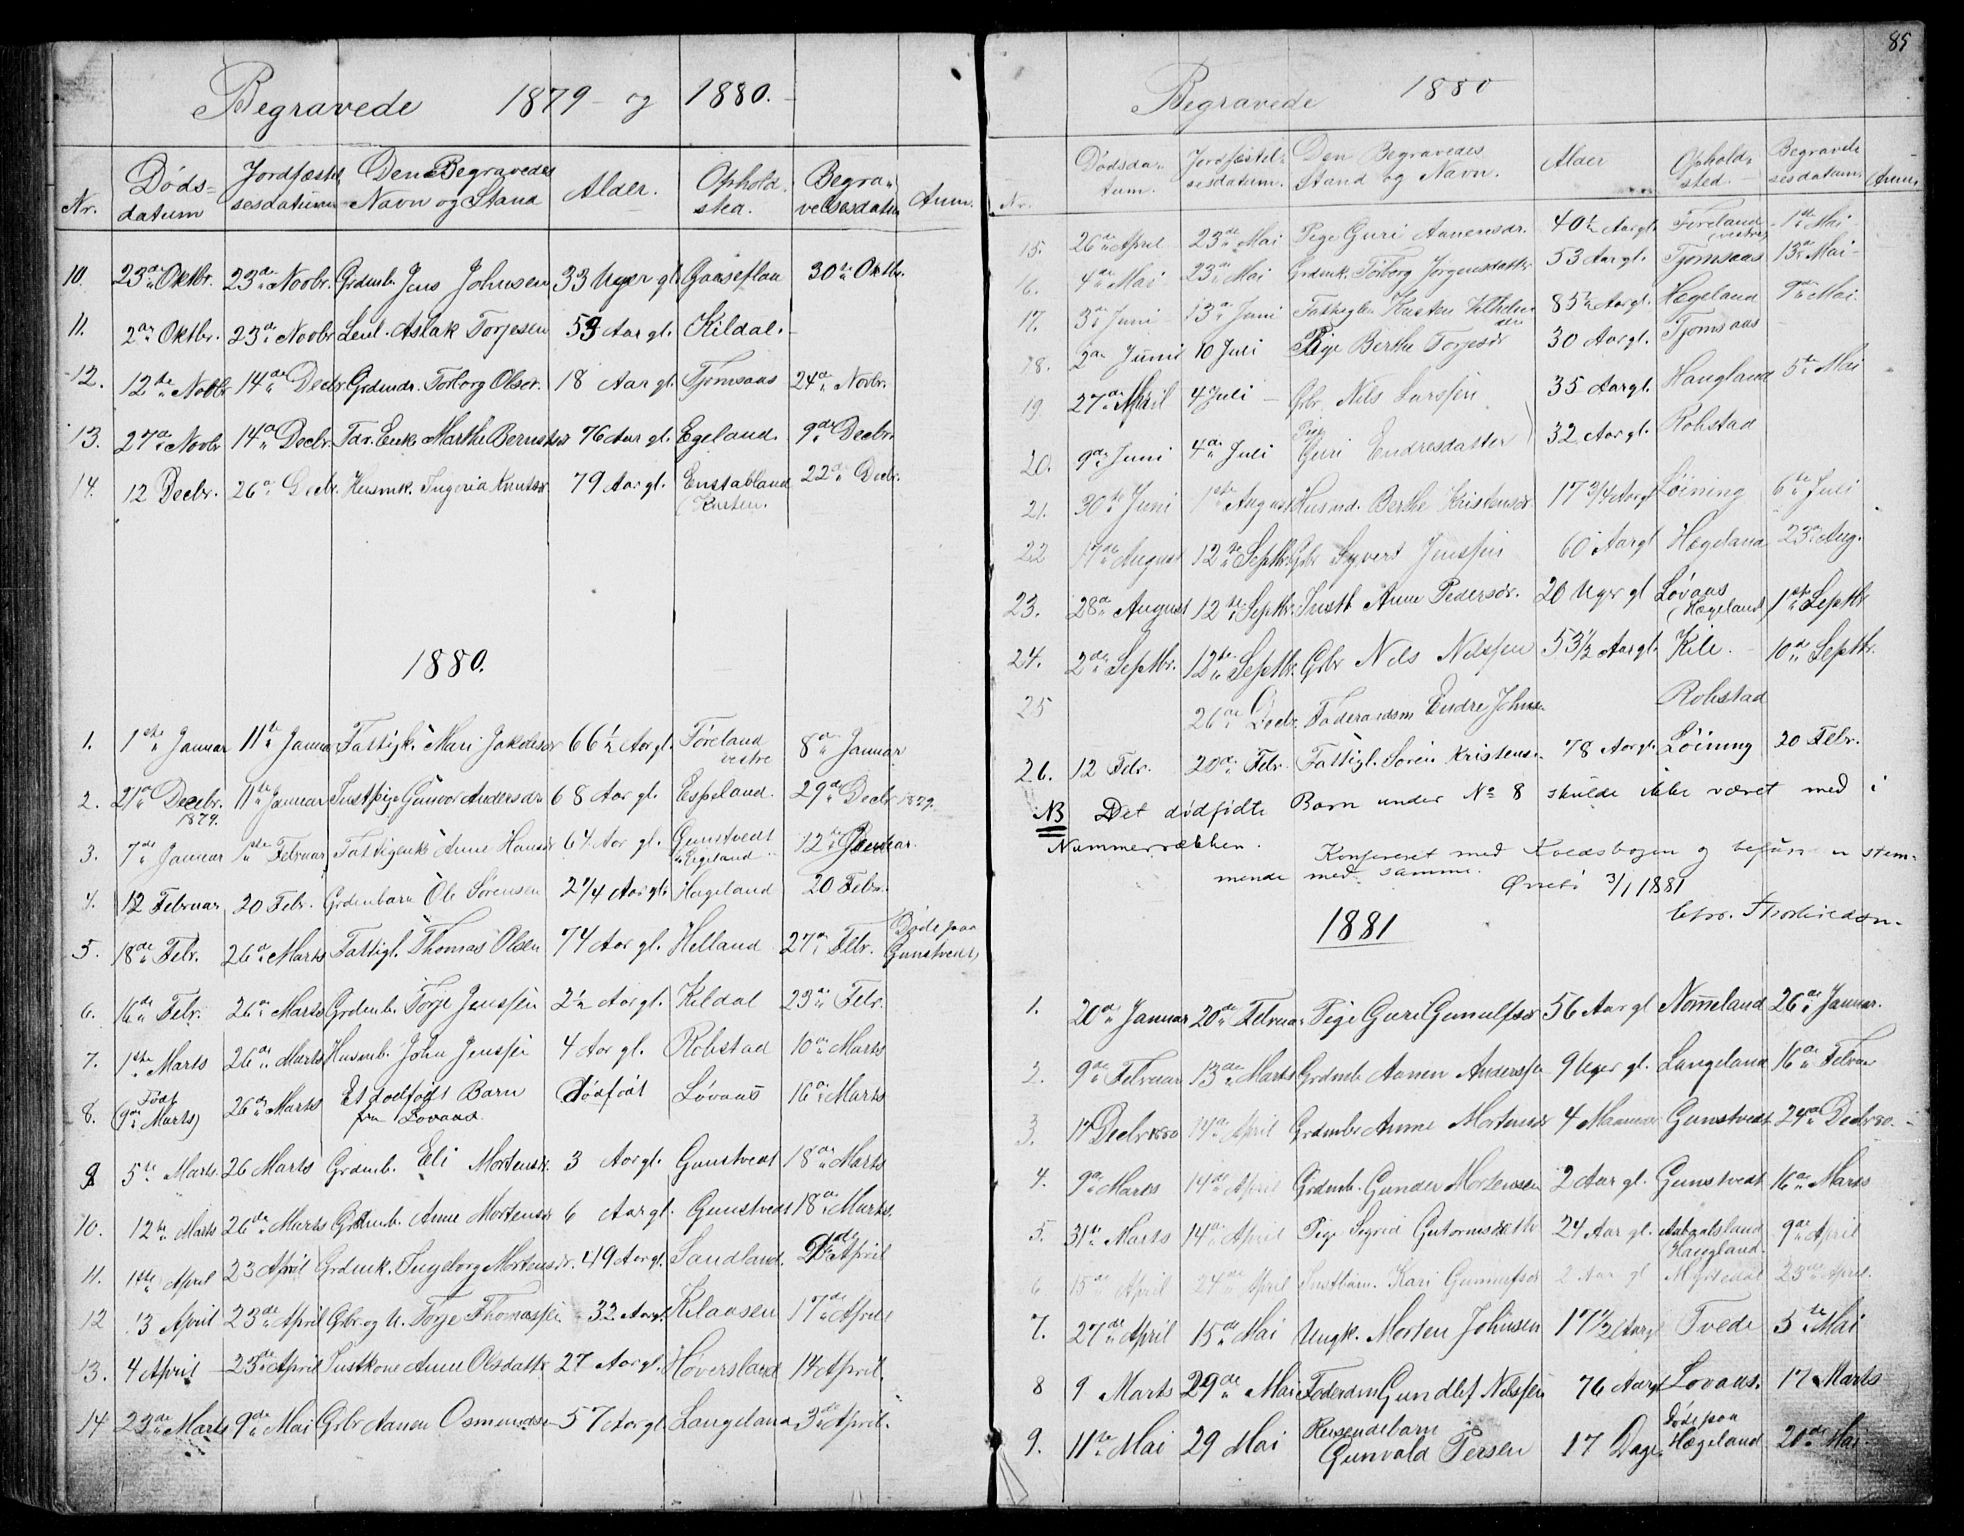 Begravede 1879 og 1880.
Nr. Dødsdatum Jordfæstelsesdatum Den Begravedes Navn og Stand Alder. Opholdsted. Begravelsesdatum Anm.
10. 23de Oktbr. 23de Novbr. Grdmb. Jens Johnsen 33 Uger gl. Gaaseflaa 30te Oktbr.
11. 2den Oktbr. 23de Novbr. Aslak Torjesen 53 Aar gl. Kildal.
12. 12te Novbr 14de Decbr. Torborg Olsdr. 18 Aar gl. Tjomsaas 24de Novbr.
13. 27de Novbr 14de Decbr. Fdr. Enk. Marthe Berntsdr 76 Aar gl. Egeland. 9de Decbr.
14. 12 Decbr. 26de Decbr. Husmk. Ingeria Knutsdr 79 Aar gl. Enstabland 22de Decbr.
1880.
1. 1ste Januar 11te Januar Fattigk. Mari Jakobsdr 66½ Aar gl. Føreland vestre 8de Januar
2. 21de Decbr. 1879. 11te Januar Gunvor Andersdr 68 Aar gl. Espeland. 29de Decbr. 1879.
3. 7de Januar 1ste Februar Fattigenke Anne Hansdr 64 Aar gl. Gunstvedt 12te Januar.
4. 12 Februar 20 Febr. Grdmbarn Ole Sørensen 2¼ Aar gl. Hægeland 20 Febr.
5. 18de Febr. 26de Marts Fattigl. Thomas Olsen 74 Aar gl. Helland 27de Febr. Døde paa Gunstvedt
6. 16de Febr. 26de Marts Grdmb. Torje Jenssen 2½ Aar gl. Kildal 23de Febr.
7. 1ste Marts 26de Marts Husmb. John Jenssen 4 Aar gl. Robstad 10de Marts
8. Født (9de Marts) 26de Marts Et dødfødt Barn fra Lovaas Dødfødt Løvaas 16de Marts
9 5te Marts 26 Marts Grdmb. Eli Mortensdr. 3 Aar gl. Gunstvedt 18de Marts
10. 12te Marts 26de Marts Grdmb. Anne Mortensdr 6 Aar gl. Gunstvedt 18de Marts.
11. 1ste April 23 April Grdmk. Ingeborg Mortensdr. 49 Aar gl. Sandland. April
12 13 April 23de April Gbr. og U. Torje Thomassen 32 Aar gl. Klaasen 17de April
13. 4 April 23de April Instkone Anne Olsdatter 27 Aar gl. Høversland 14 April.
14 23de Marts 9de Mai Gbr Aanen Osmundsen 57 Aar gl. Langeland 3de April.
85
Begravede 1880
Nr. Dødsdatum. Jordfæstelsesdatum. Den Begravedes Stand og Navn. Alder Opholdssted. Begravelsesdatum. Anm.
15. 26de April 23de Mai Pige Guri Aanensdr. 40½ Aar gl. Føreland (vestre) 1ste Mai
16. 4de Mai 23de Mai Grdmk. Torborg Jørgensdatter 53 Aar gl. Tjomsaas 13de Mai
17. 3de Juni 13de Juni Fattigl. 85½ Aar gl. Hægeland 9de Mai.
18. 2den Juni 10 Juli Pige Berthe Torjesdr 30 Aar gl. Tjomsaas
19. 27de April 4 Juli Gbr Nils Larssen 35 Aar gl. Haugland 5te Mai
20. 9de Juni 4de Juli Pige Guri Endresdatter 32 Aar gl. Robstad
21. 30te Juni 1ste August Husmd. Berthe Kristensdr. 17 3/4 Aar gl Løining 6te Juli
22 17de August 12te Septbr. Gbr Syvert Jenssen 60 Aar gl Hægeland 23de Aug.
23. 28de August 12te Septbr. Instb Anne Pedersdr. 20 Uger gl Løvaas (Hægeland) 1ste Septbr
24. 2den Septbr. 12te Septbr. Gbr Nils Nilssen 53½ Aar gl. Kile. 10de Septbr.
25 26de Decbr. Føderaadsm Endre Johnsen Robstad
26. 12 Febr. 20de Febr Fattigl. Søren Kristensen 78 Aar gl. Løining 20 Febr.
NB Det dødfødte Barn under No 8 skulde ikke været med i
Nummerrækken.
Konfereret med Kladdebogen og befunden stem-
mende med samme.
Øvrebø 3/1 1881
1881
1. 20de Januar 20de Februar Pige Guri Gunulfsdr 56 Aar gl Nomeland 26de Januar.
2. 9de Februar 13de Marts Grdmb Aanen Anderssen 9 Uger gl. Langeland 16de Februar
3. 17 Decbr 1880 14de April Grdmb Anne Mortensdr 4 Maaneder Gunstvedt 24de Decbr 80.
4. 9de Marts 14de April Grdmb. Gunder Mortenssen 2 Aar gl. Gunstvedt 16de Marts
5. 31te Marts 14de April Pige Sigrid Gutormsdatter 24 Aar gl. Aabaalsland (Haugland) 9de April
6 15de April 24de April Instbarn. Kari Gunulfsdr 2 Aar gl Myredal 23de April.
7. 27de April 15de Mai Ungk. Morten Johnsen 17½ Aar gl Tvede 5te Mai
8 9 Marts 29de Mai Føderdm Gundlef Nilssen 76 Aar gl Lovaas. 17 Marts
9. 11te Mai 29 Mai Reisendebarn Gunvald Persen 17 Dage. Døde paa Hægeland 20de Mai.